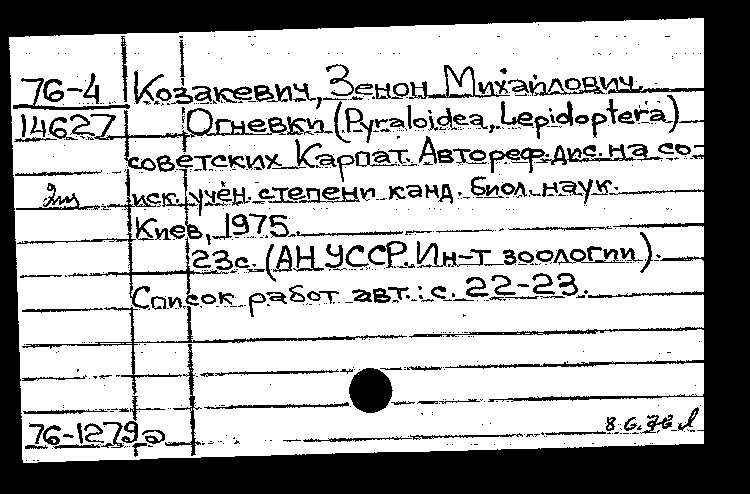 76-4 Козакевич, Зенон Михайлович.
14627 Огневки (Pyraloidea, Lepidoptera)
советских Карпат. Автореф. дис. на со-
иск. учен. степени канд. биол. наук.
Киев, 1975.
23с. (АН УССР. Ин-т зоологии).
Список работ авт.: с. 22-23.
76-1279а 8.6.76